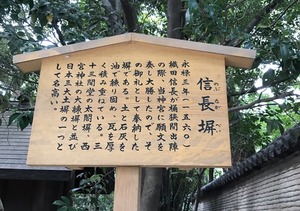 信長塀
永禄三年（一五六〇）
織田信長が桶狭間出陣
の際、当神宮に願文を
奏し大勝したので、そ
の御礼として奉納した
塀である。土と石灰を
油で練り固め瓦を厚
く積み重ねている。三
十三間堂の太閤塀、西
宮神社の大練塀と並び
日本三大土塀の一つと
して名高い。